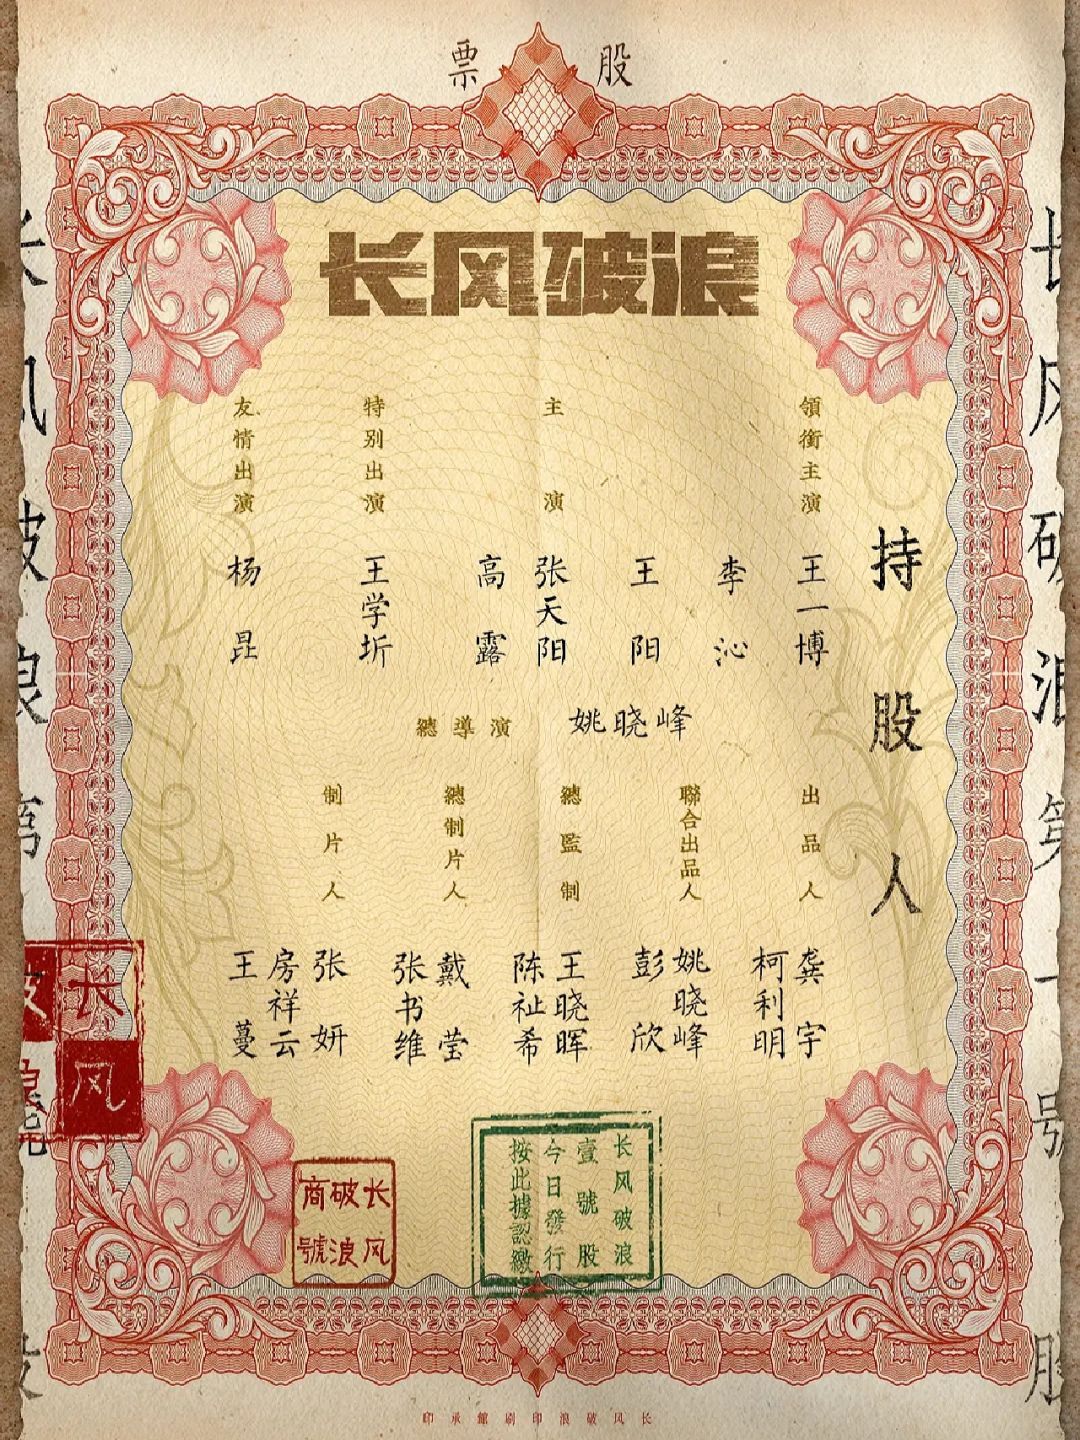 股票
长风破浪
持股人
領銜主演
王一博
李沁
主演
王阳
张天阳
高露
特别出演
王学圻
友情出演
杨昆
總導演 姚晓峰
出品人
龚宇
柯利明
聯合出品人
姚晓峰
彭欣
總監制
王晓晖
陈祉希
總制片人
戴莹
张书维
制片人
张妍
房祥云
王蔓
长风破浪
壹號股
今日發行
按此據認繳
长风
破浪
商號
长风
破浪
长风破浪第一號股
长风破浪第 號股
长风破浪印刷館承印